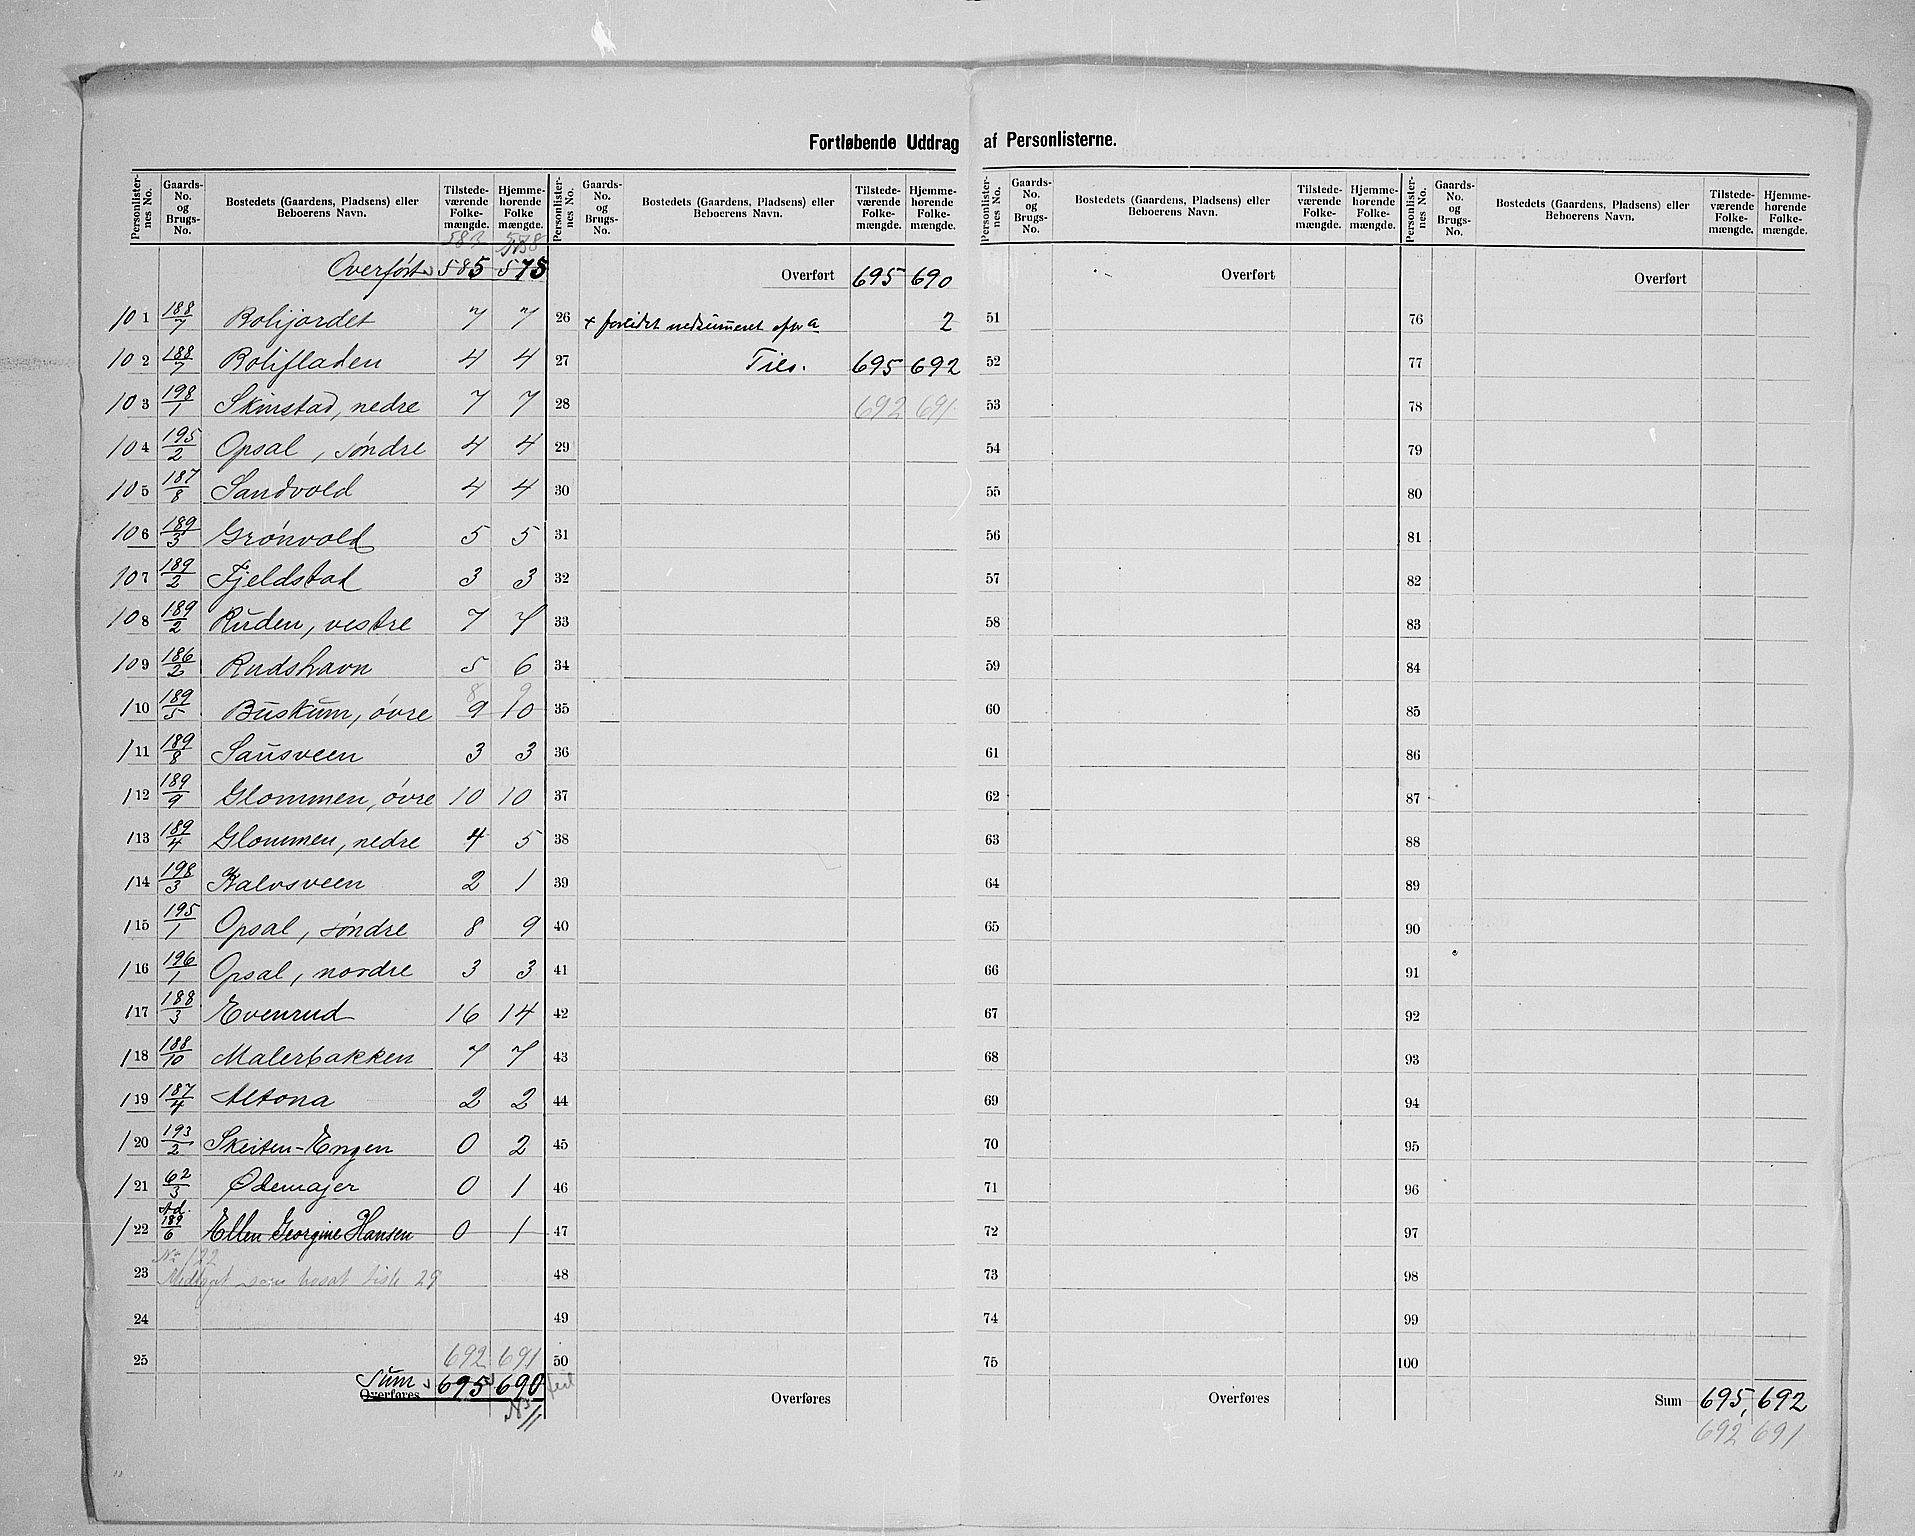 Fortløbende Uddrag af Personlisterne.
Personlister-nes No. | Gaards-No. og Brugs-No. | Bostedets (Gaardens, Pladsens) eller Beboerens Navn. | Tilstede-værende Folke-mængde. | Hjemme-hørende Folke mængde.
583 578
Overført 585 575
101 188/7 Bolijordet 7 7
102 188/7 Bolifladen 4 4
103 198/1 Skinstad, nedre 7 7
104 195/2 Opsal, søndre 4 4
105 187/8 Sandvold 4 4
106 189/3 Grønvold 5 5
107 189/2 Fjeldstad 3 3
108 189/2 Ruden, vestre 7 7
109 186/2 Rudshavn 5 6
8 9
110 189/5 Buskum, øvre 9 10
111 189/8 Sausveen 3 3
112 189/9 Glommen, øvre 10 10
113 189/4 Glommen, nedre 4 5
114 198/3 Kalvsveen 2 1
115 195/1 Opsal, søndre 8 9
116 196/1 Opsal, nordre 3 3
117 188/3 Evenrud 16 14
118 188/10 Malerbakken 7 7
119 187/4 Altona 2 2
120 193/2 Skeiten-Engen 0 2
121 62/3 Ødemajer 0 1
Ad.
122 189/6 Ellen Georgine Hansen 0 1
No 122
23 Medtagt som bosat liste 29
24
25 692 691
Sum 695 690 feil
Overføres
NB
Personlister-nes No. | Gaards-No. og Brugs-No. | Bostedets (Gaardens, Pladsens) eller Beboerens Navn. | Tilstede-værende Folke-mængde. | Hjemme-hørende Folke-mængde.
Overført 695 690
26 + 2
27 Tils. 695 692
28 692 691
29
30
31
32
33
34
35
36
37
38
39
40
41
42
43
44
45
46
47
48
49
50
Overføres
Personlister-nes No. | Gaards-No. og Brugs-No. | Bostedets (Gaardens, Pladsens) eller Beboerens Navn. | Tilstede-værende Folke-mængde. | Hjemme-hørende Folke-mængde.
Overført
51
52
53
54
55
56
57
58
59
60
61
62
63
64
65
66
67
68
69
70
71
72
73
74
75
Overføres
Personlister-nes No. | Gaards-No. og Brugs-No. | Bostedets (Gaardens, Pladsens) eller Beboerens Navn. | Tilstede-værende Folke-mængde. | Hjemme-hørende Folke-mængde.
Overført
76
77
78
79
80
81
82
83
84
85
86
87
88
89
90
91
92
93
94
95
96
97
98
99
100
Sum 695, 692
692 691